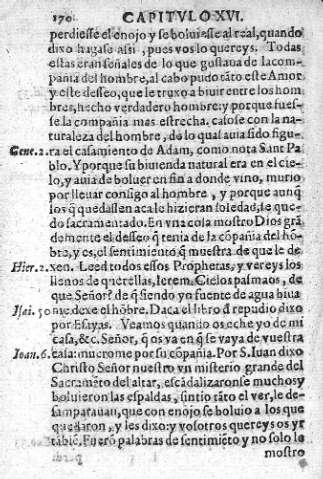 170 CAPITVLO XVI.
perdiesse el enojo y se boluiesse al real, quando
dixo hagase assi, pues vos lo quereys. Todas
estas eran señales de lo que gustaua de la com-
pañia del hombre, al cabo pudo tãto este Amor
y este desseo, que le truxo a biuir entre los hom
bres, hecho verdadero hombre: y porque fues-
se la compañia mas estrecha, casose con la na-
turaleza del hombre, de lo qual auia sido figu-
Gene. 2. ra el casamiento de Adam, como nota Sant Pa
blo. Y porque su biuienda natural era en el cie-
lo, y auia de boluer en fin a donde vino, murio
por lleuar consigo al hombre, y porque aunq̃
los q̃ quedassen aca le hizieran soledad, se que-
do sacramentado. En vna cosa mostro Dios grã
demente el desseo q̃ tenia de la cõpañia del hõ-
bre, y es, el sentimiento q̃ muestra de que le de
Hier. 2. xen. Leed todos essos Prophetas, y vereys los
llenos de querellas, Ierem. Cielos pasmaos, de
que Señor? de q̃ siendo yo fuente de agua biua
Isai. 50 me dexe el hõbre. Daca el libro d̃ repudio dixo
por Esayas. Veamos quando os eche yo de mi
casa, &c. Señor, q̃ os va en q̃ se vaya de vuestra
Ioan. 6. casa: mucrome por su cõpañia. Por S. Iuan dixo
Christo Señor nuestro vn misterio grande del
Sacramẽto del altar, escãdalizaronse muchos y
boluieron las espaldas, sintio tãto el ver, le de-
samparauan, que con enojo se boluio a los que
quedaron, y les dixo: y vosotros quereys os yr
tãbiẽ. Fuerõ palabras de sentimiẽto y no solo le
mostro